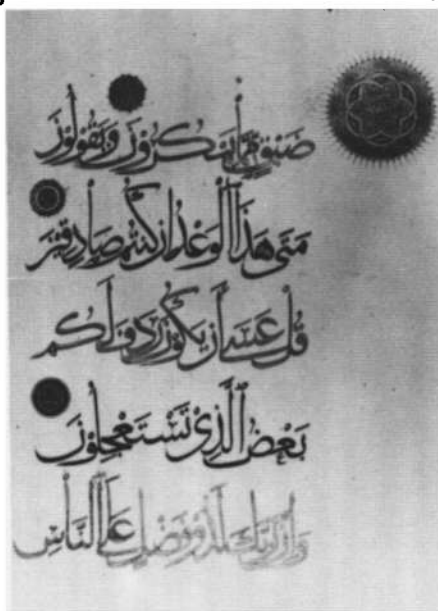 ضَيْقٍ مِمَّا يَمْكُرُونَ وَيَقُولُونَ
مَتَى هَذَا الْوَعْدُ إِنْ كُنْتُمْ صَادِقِينَ
قُلْ عَسَى أَنْ يَكُونَ رَدِفَ لَكُمْ
بَعْضُ الَّذِي تَسْتَعْجِلُونَ
وَإِنَّ رَبَّكَ لَذُو فَضْلٍ عَلَى النَّاسِ